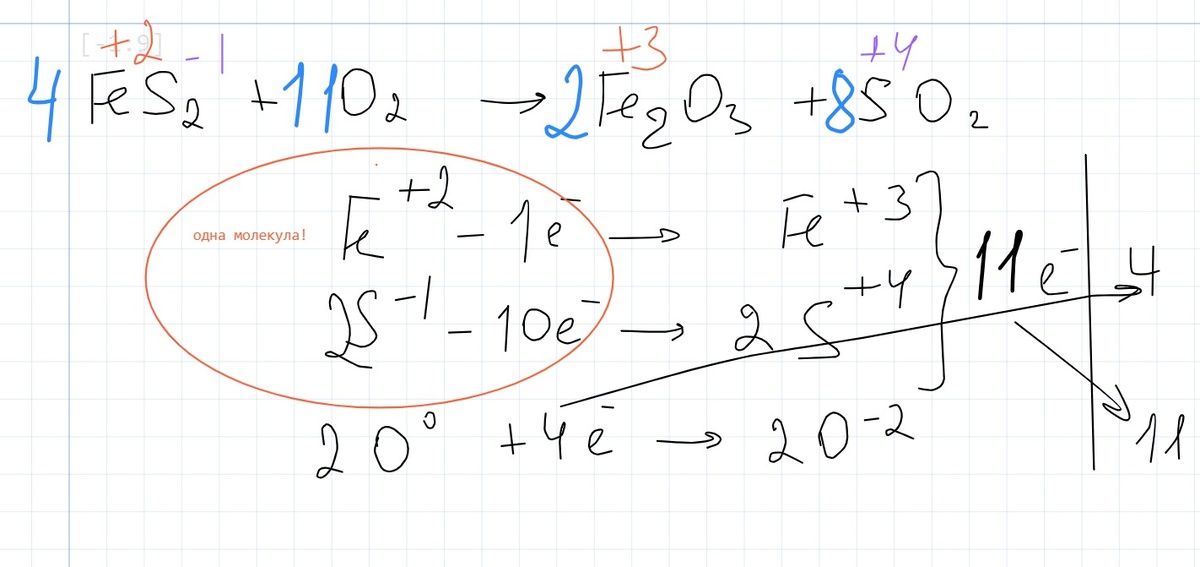 +2 -1 +3 +4
4 FeS₂ + 11 O₂ → 2 Fe₂O₃ + 8 SO₂
одна молекула!
Fe⁺² - 1e⁻ → Fe⁺³
2S⁻¹ - 10e⁻ → 2S⁺⁴
11e⁻ 4
2O⁰ + 4e⁻ → 2O⁻² 11